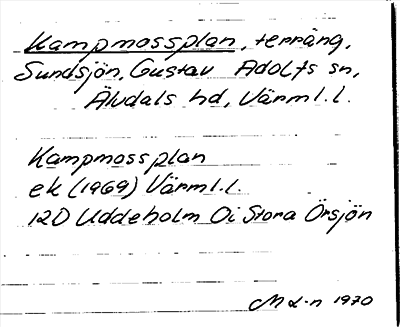 Kampmossplan, terräng,
Sundsjön, Gustav Adolfs sn,
Älvdals hd, Värml.l.
Kampmossplan
ek (1969) Värml.l.
12D Uddeholm 0i Stora Örsjön
M L-n 1970